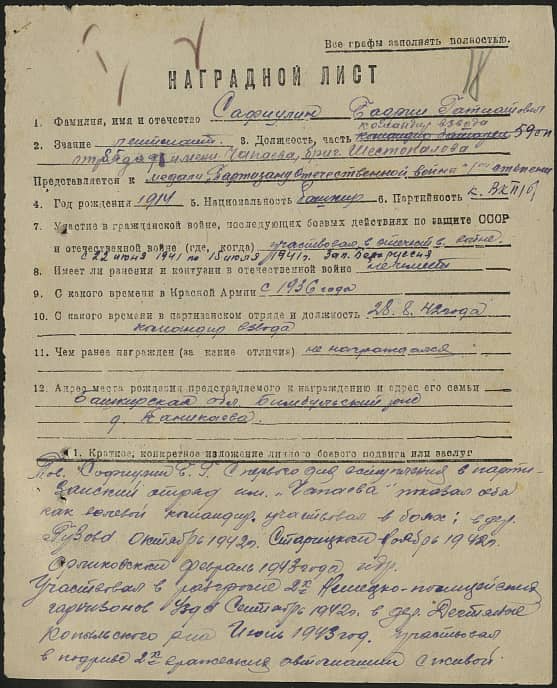 Все графы заполнять полностью.
НАГРАДНОЙ ЛИСТ
1. Фамилия, имя и отчество Сафиулин
командир взвода
2. Звание лейтенант 3. Должность, часть
отряда имени Чапаева, бриг. Шестопалова
Представляется к медали "Партизану Отечественной война" 1й степени
4. Год рождения 1914 5. Национальность Башкир 6. Партийность к. ВКП(б)
7. Участие в гражданской войне, последующих боевых действиях по защите СССР
и отечественной войне (где, когда) участвовал в отечеств. войне
с 22 июня 1941 по 15 июля 1941г. Зап. Белоруссия
8. Имеет ли ранения и контузии в отечественной войне
9. С какого времени в Красной Армии с 1936 года
10. С какого времени в партизанском отряде и должность 28.8.42 года
командир взвода
11. Чем ранее награжден (за какие отличия) не награждался
12. Адрес места рождения представляемого к награждению и адрес его семьи
Башкирская обл.
д.
1. Краткое, конкретное изложение личного боевого подвига или заслуг
Тов. Сафиулин с первого дня вступления в парти-
занский отряд им. "Чапаева" показал себя
как волевой командир, участвовал в боях: в дер.
октябрь 1942г. ноябрь 1942г.
февраль 1943 года и др.
Участвовал в разгроме 2х немецко-полицейских
гарнизонов сентябрь 1942г. в дер.
Копыльского р-на июль 1943 год. участвовал
в подрыве 2х вражеских автомашин с живой